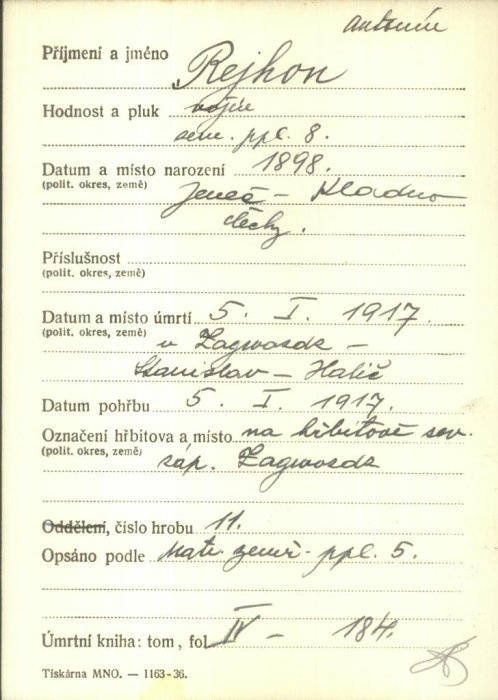 Antonín
Příjmení a jméno Rejhon
Hodnost a pluk vojín
zem. ppl. 8.
Datum a místo narození 1898.
(polit. okres, země) Jeneč - Kladno
Čechy.
Příslušnost
(polit. okres, země)
Datum a místo úmrtí 5. I. 1917.
(polit. okres, země) u Zagwozdz -
Stanislav - Halič
Datum pohřbu 5. I. 1917.
Označení hřbitova a místo na hřbitově sev.
(polit. okres, země) záp. Zagwozdz
Oddělení, číslo hrobu 11.
Opsáno podle Matr. zemř. ppl. 5.
Úmrtní kniha: tom, fol. IV - 184.
Tiskárna MNO. — 1163-36.